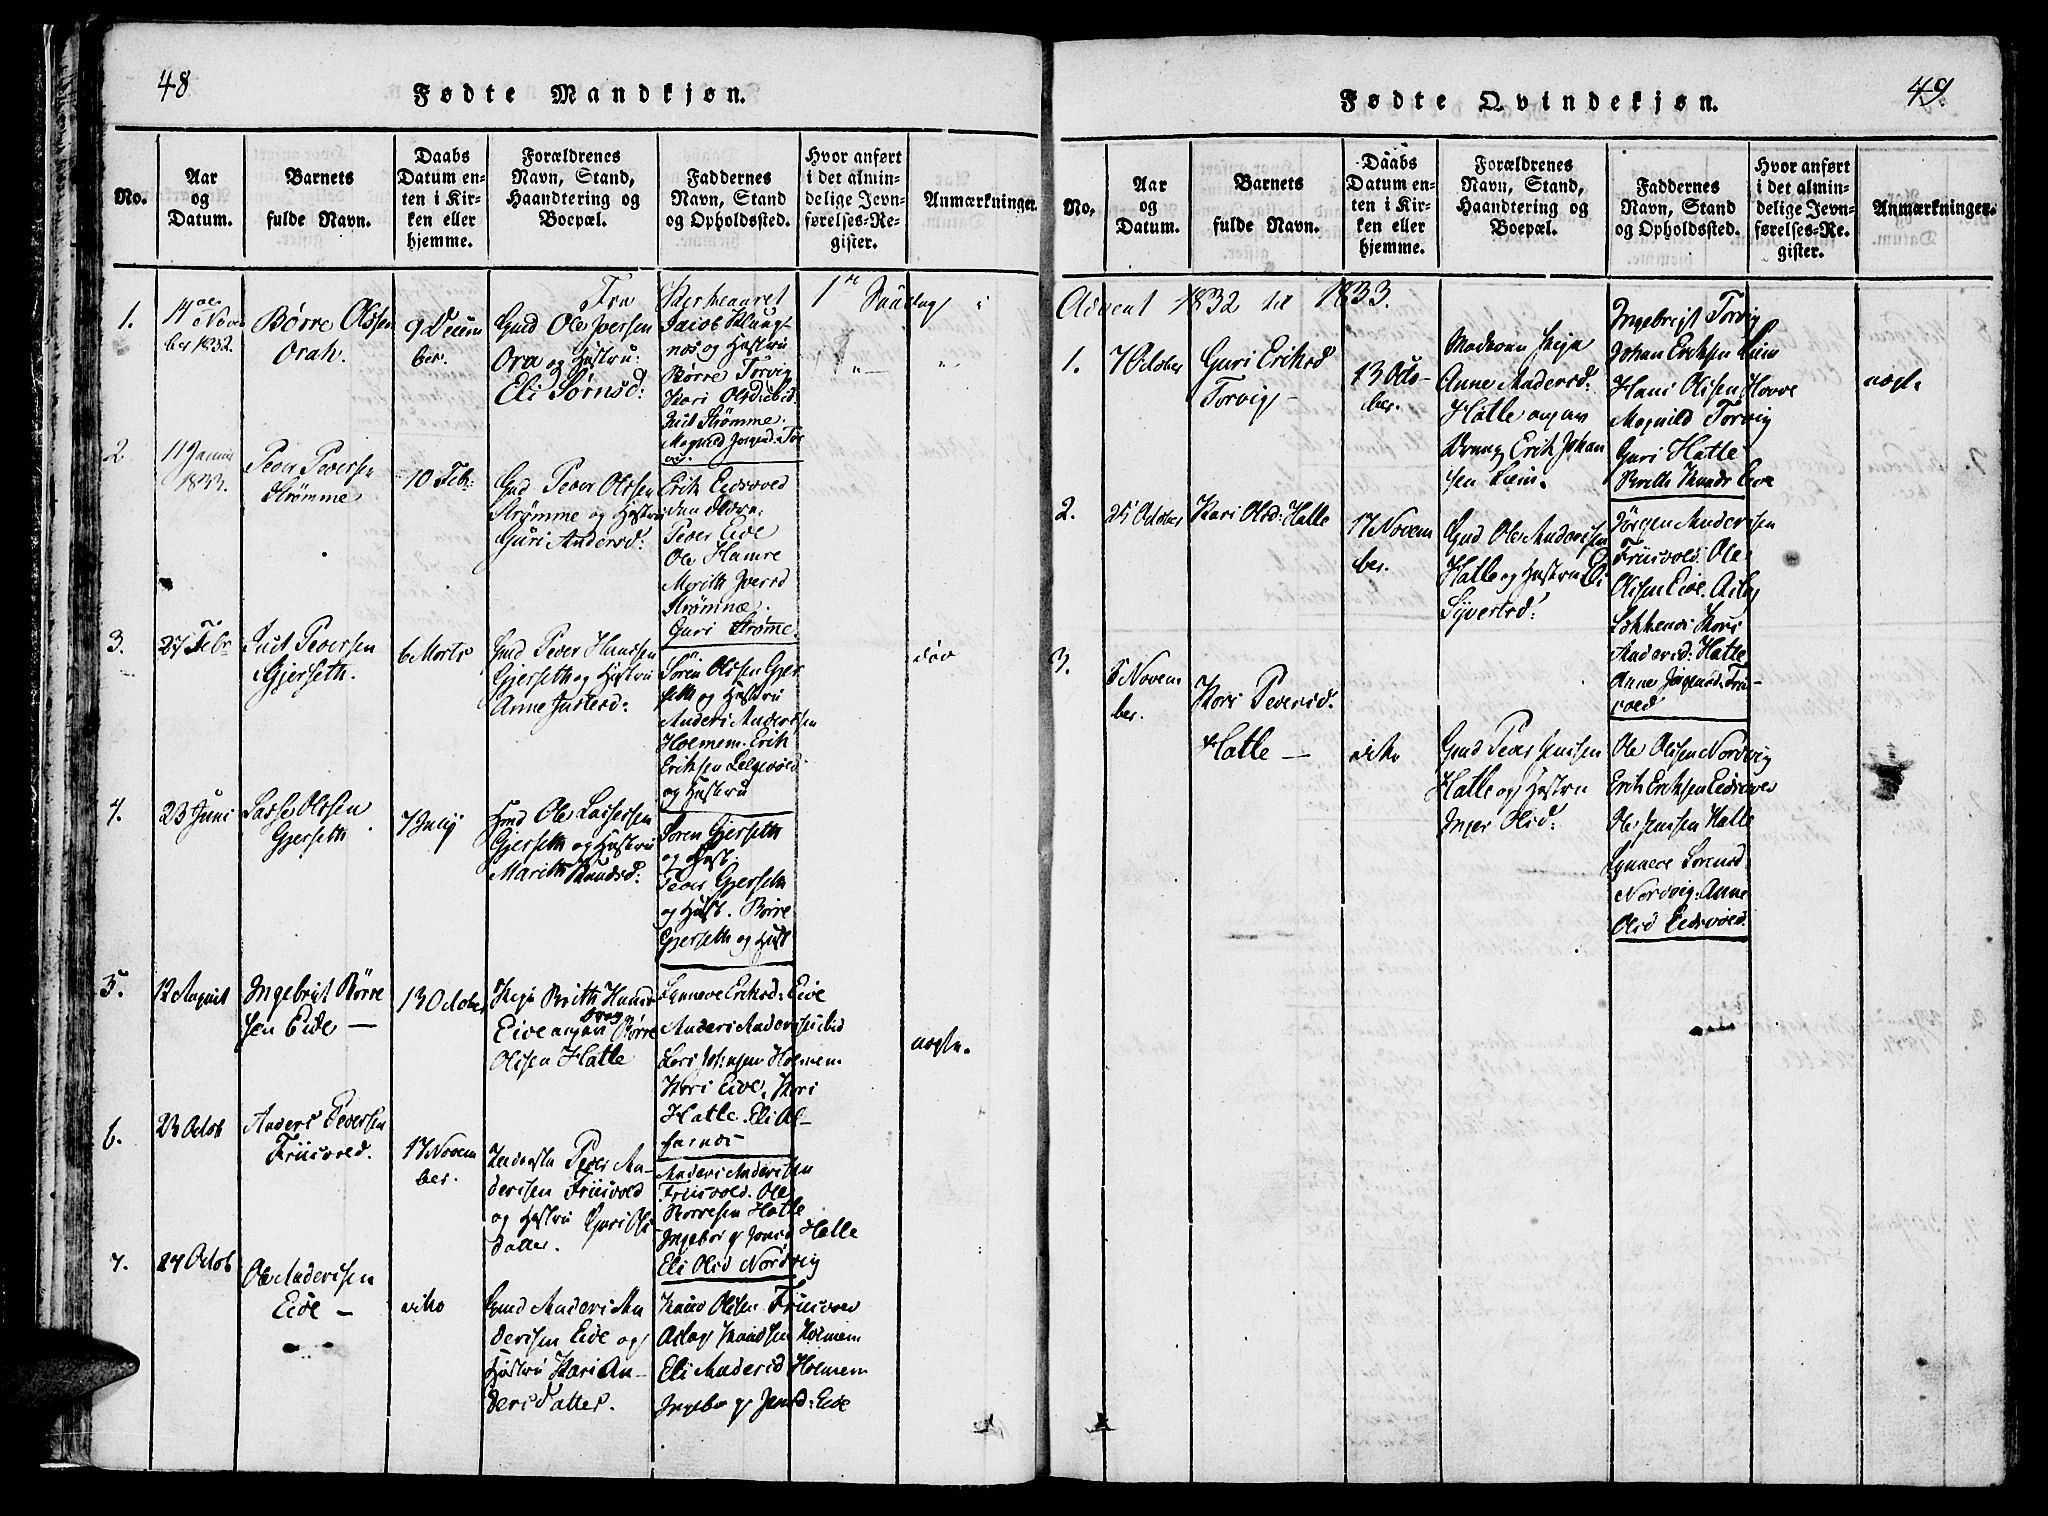 48
Fødte Mandkjøn.
No.
Aar
og
Datum.
Barnets
fulde Navn.
Daabs
Datum en-
ten i Kir-
ken eller
hjemme.
Forældrenes
Navn, Stand,
Haandtering og
Boepæl.
Faddernes
Navn, Stand
og Opholdssted.
Hvor anført
i det almin-
delige Jevn-
førelses-Re-
gister.
Anmærkninger.
Fra Kirkeaaret 1ste Søndag i
1.
14 Novem
ber 1832.
Børre Olssen
Orah.
9 Decem
ber.
Gmd Ole Iversen
Ora og Hustru:
Eli Sørnsd:
Jacob Klung-
nes og Hustru
Børre Torvig
Kari Olsd ibid:
Strømme.
2
11 Januar
1833.
Peder Pedersen
Strømme
10 Febr:
Gmd Peder Olssen
Strømme og Hustru
Guri Andersd:
Erik Eidsvold
Peder Eide
Ole Hamre
Marith Iversd
Strømme.
Guri Strømme.
3.
27 Febr
Pedersen
Gjerseth.
6 Marts
Gmd Peder Hansen
Gjerseth og Hustru
Anne
død
Sören Olssen Gjer
seth og Hustru
Anders Anderssen
Holmem. Erik
Eriksen
og Hustru
4.
23 Juni
Lasse Olssen
Gjerseth
7 July
Gmd Ole Lassesen
Gjerseth og Hustru
Marith Knudsd:
Sören Gjerseth
og Hust.
Peder Gjerseth
og Hust. Børre
Gjerseth og Hust
5.
12 August
Ingebrigt Børre
sen Eide —
13 October
Pige Brith Knuds
Eide angav Børre
Olssen Hatle
Synneve Eriksd: Eide
Anders Andersen ibid
Lars Johnsen Holmem
Kari Eide. Kari
Hatle. Eli Al-
farnes
uægte.
6.
23 Octob
Anders Pedersen
Friisvold.
17 Novem
ber.
Peder An-
dersen Friisvold
og Hustru Guri Ols
datter.
Anders Andersen
Friisvold. Ole
Børresen Hatle
Ingeborg Jensd Hatle
Eli Olsd Nordvig
7.
24 Octob
Ole Andersen
Eide —
dito
Gmd Anders An
dersen Eide og
Hustru Kari An-
ders Datter.
Knud Olssen Friisvold
Aslag Knudsen Holmem
Eli Andersd Holmem
Ingeborg Jensd: Eide
49.
Fødte Qvindekjøn.
No.
Aar
og
Datum.
Barnets
fulde Navn.
Daabs
Datum en-
ten i Kir-
ken eller
hjemme.
Forældrenes
Navn, Stand,
Haandtering og
Boepæl.
Faddernes
Navn, Stand
og Opholdssted.
Hvor anført
i det almin-
delige Jevn-
førelses-Re-
gister.
Anmærkninger.
Advent 1832 til 1833.
1.
7 October
Guri Eriksd
Torvig —
13 Octo-
ber.
Moderen Pige
Anne Andersd:
Hatle angav
Dreng Erik Johan
sen Liem.
Ingebrigt Torvig
Johan Eriksen Liem
Hans Olssen Hovve
Magnild Torvig
Guri Hatle
Brith Knuds Eide
uægte
2.
25 October
Kari Olsd: Hatle
17 Novem
ber.
Gmd Ole Andersen
Hatle og Hustru Eli
Syvertsd:
Jørgen Andersen
Friisvold. Ole
Olssen Eide. Aslag
Kari
Andersd: Hatle
Anne Jørgensd. Frii-
svold
3.
5 Novem
ber.
Kari Pedersd.
Hatle —
dito
Gmd Peder Jensen
Hatle og Hustru
Inger Olsd:
Ole Olssen Nordvig
Erik Eriksen Eidsvold
Ole Jensen Hatle
Synneve Sørensd
Nordvig. Anne
Olsd Eidsvold.